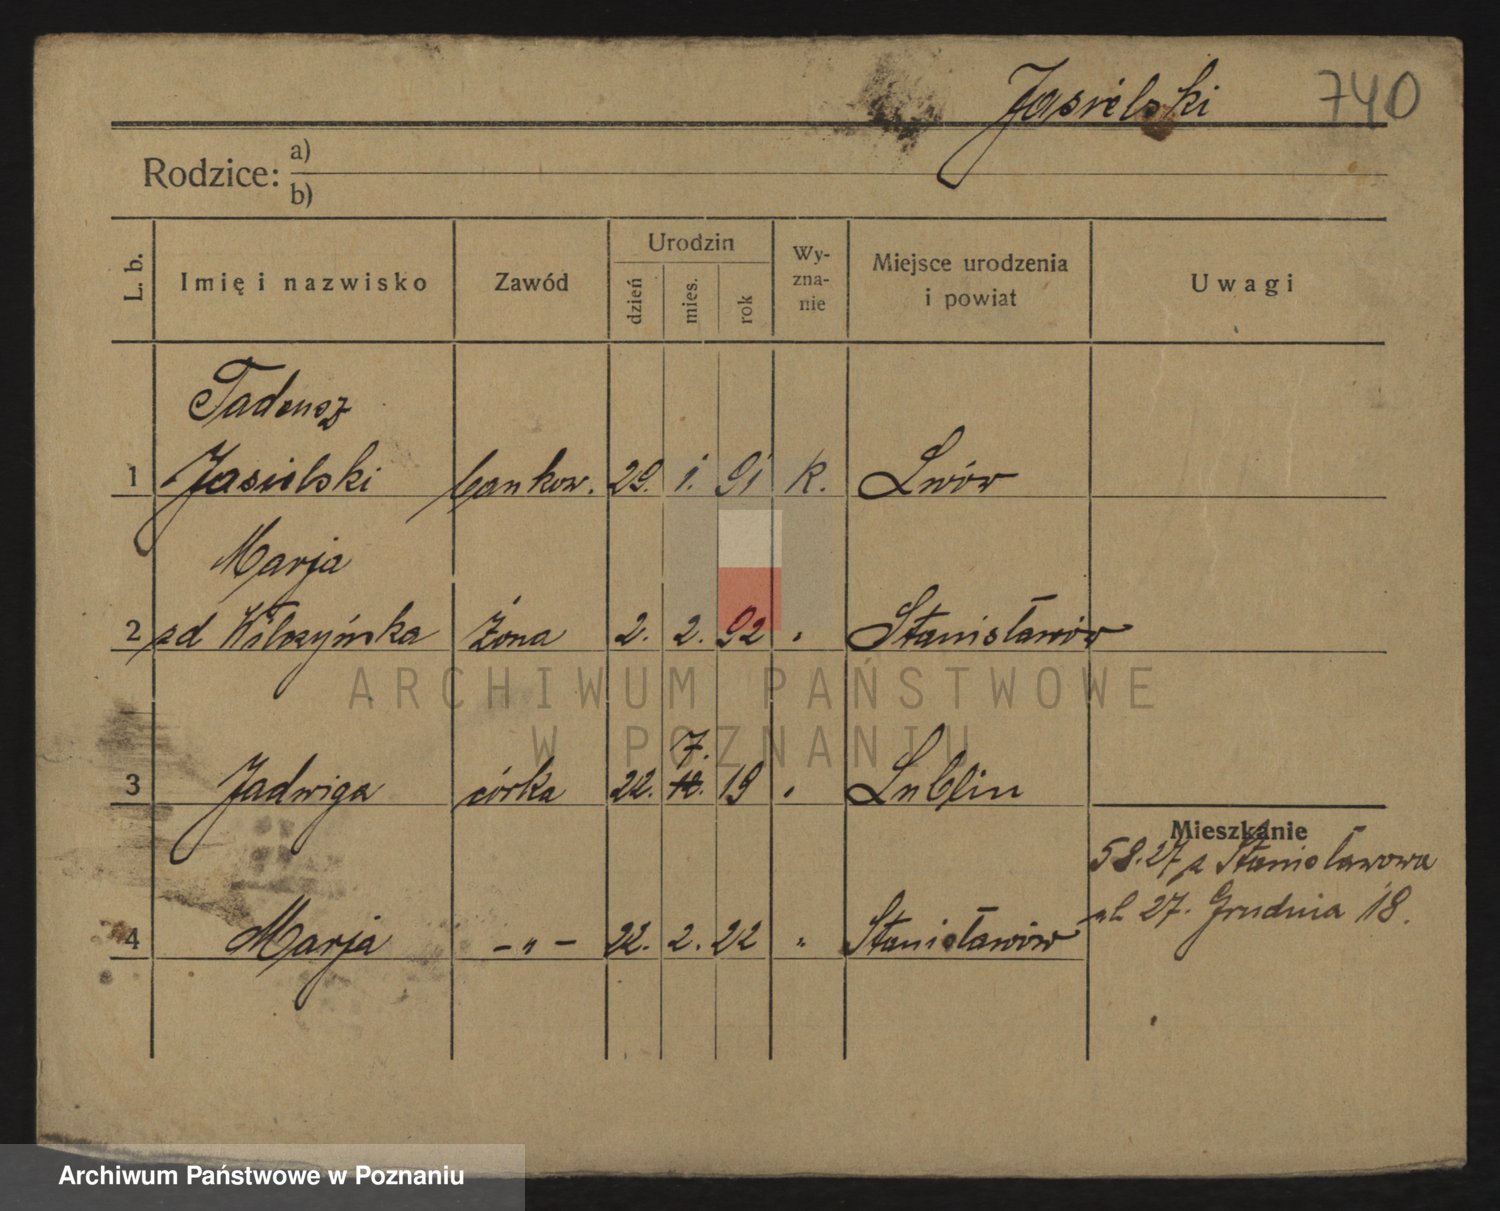 Jasielski 740
Rodzice: a)
b)
L. b. Imię i nazwisko Zawód Urodzin dzień mies. rok Wy-zna-nie Miejsce urodzenia i powiat Uwagi
Tadeusz
1 Jasielski bankow. 29. 1. 91 k. Lwów
Marja
2 zd Wilczyńska żona 2. 2. 92 " Stanisławów
7.
3 Jadwiga córka 22. 12. 19 " Lublin
Mieszkanie
5 8. 27 z Stanisławowa
ul 27. Grudnia 18.
4 Marja - " - 22. 2. 22 " Stanisławów
ARCHIWUM PAŃSTWOWE
W POZNANIU
Archiwum Państwowe w Poznaniu